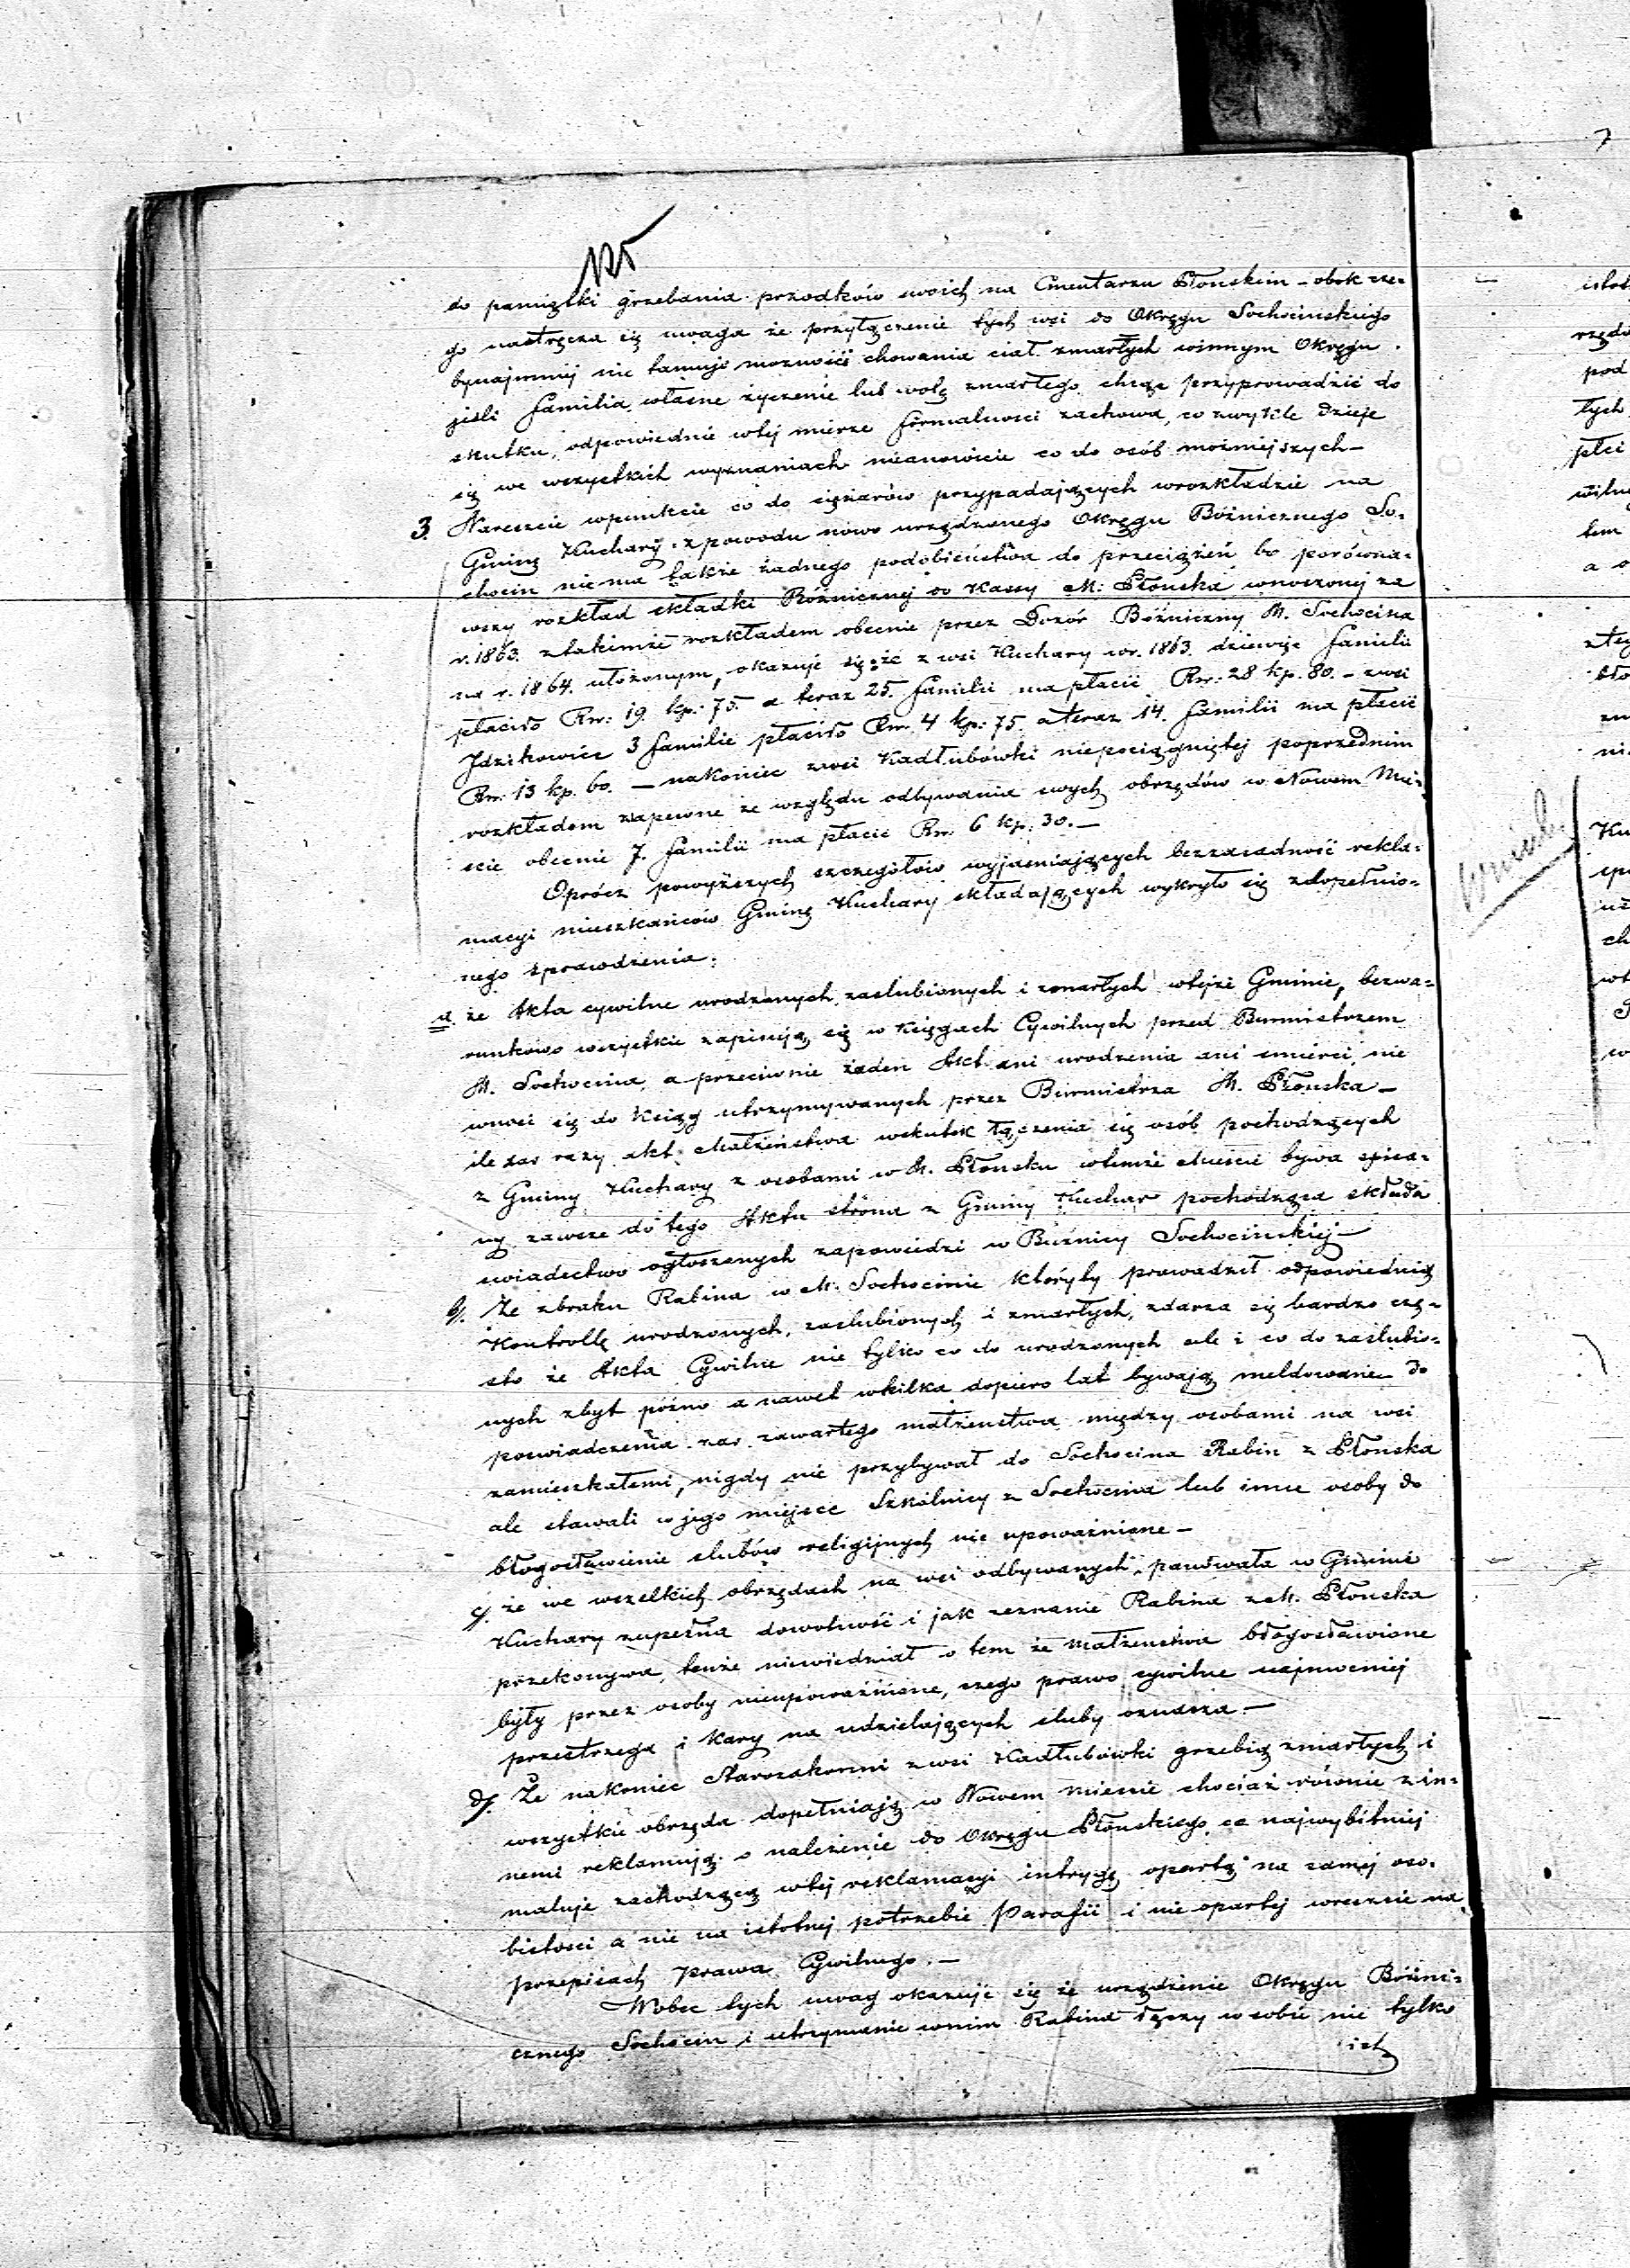 do pamiątki grzebania przodków swoich na Cmentarzu Płonskim – obok cze-
go nastręcza się uwaga że przyłączenie tych wsi do Okręgu Sochocinskiego
bynajmniej nie tamuje możności chowania ciał zmarłych winnym Okręgu.
jeśli familia, własne życzenie lub wolę zmarłego chcąc przyprowadzić do
skutku, odpowiednie wtej mierze formalności zachowa, co zwykle dzieje
się we wszystkich wyznaniach mianowicie co do osób możniejszych –
3. Nareszcie wpunkcie co do ciężarów przypadających wrozkładzie na
Gminę Kuchary, zpowodu nowo urządzonego Okręgu Bóżnicznego So-
chocin niema także żadnego podobieństwa do przeciążeń bo porówna-
wszy rozkład składki Bóżnicznej do Kassy M: Płonska wnoszonej za
r. 1863. ztakimże rozkładem obecnie przez Dozór Bóżniczny M. Sochocina
na r. 1864. ułożonym, okazuje się: że z wsi Kuchary wr. 1863. dziewięć familii
płaciło Rr: 19. kp: 75. a teraz 25. familii ma płacić Rr: 28 kp. 80. – zwsi
Idzikowice 3 familie płaciło Rr: 4 kp: 75 ateraz 14. familii ma płacić
Rr: 13 kp. 60. – nakoniec zwsi Kadłubówki niepociągniętej poprzednim
rozkładem zapewne ze względu odbywania swych obrzędów w Nowem Mie-
scie obecnie 7. familii ma płacić Rr: 6 kp: 30. –
Oprócz powyższych szczegółów wyjasniających bezzasadność rekla-
macyi mieszkańców Gminę Kuchary składających wykryło się zdopełnio-
nego sprawdzenia:
a. że Akta cywilne urodzonych, zaslubionych i zmarłych wtejże Gminie, bezwa-
runkowo wszystkie zapisują się w księgach Cywilnych przed Burmistrzem
M. Sochocina, a przeciwnie żaden Akt ani urodzenia ani smierci, nie
wnosi się do Ksiąg utrzymywanych przez Burmistrza M. Płonska –
ile zas razy akt: Małżeństwa wskutek łączenia się osób pochodzących
z Gminy Kuchary z osobami w M. Płonsku wtemże Miescie bywa spisa-
ny zawsze do tego Aktu strona z Gminy Kuchar pochodząca składa
swiadectwo ogłoszonych zapowiedzi w Bużnicy Sochocinskiej –
b/. Że zbraku Rabina w M. Sochocinie któryby prowadził odpowiednią
Kontrollę urodzonych, zaslubionych i zmarłych, zdarza się bardzo czę-
sto że Akta Cywilne nie tylko co do urodzonych ale i co do zaslubio-
nych zbyt późno a nawet wkilka dopiero lat bywają meldowane do
poswiadczenia zas zawartego małżeństwa między osobami na wsi
zamieszkałemi, nigdy nie przybywał do Sochocina Rabin z Płonska
ale stawali w jego miejsce Szkólnicy z Sochocina lub inne osoby do
błogosławienie slubów religijnych nie upoważnione –
c/. że we wszelkich obrzędach na wsi odbywanych, panowała w Gminie
Kuchary zupełna dowolność i jak zeznanie Rabina zM. Płonska
przekonywa, tenże niewiedział o tem że małżeństwa błogosławione
były przez osoby nieupoważnione, czego prawo cywilne najmocniej
przestrzega i kary na udzielających sluby oznacza. –
d/. Że nakoniec Starozakonni z wsi Kadłubówki grzebią zmarłych i
wszystkie obrzęda dopełniają w Nowem miescie chociaż równie zin-
nemi reklamują o należenie do Okręgu Płonskiego, co najwybitniej
maluje zachodzącą wtej reklamacyi intrygę opartą na samej oso-
bistosci a nie na istotnej potrzebie Parafii i nie opartej wreszcie na
przepisach Prawa Cywilnego. –
Wobec tych uwag okazuje się że urządzenie Okręgu Bóżni-
cznego Sochocin i utrzymanie wnim Rabina łączy w sobie nie tylko
ich